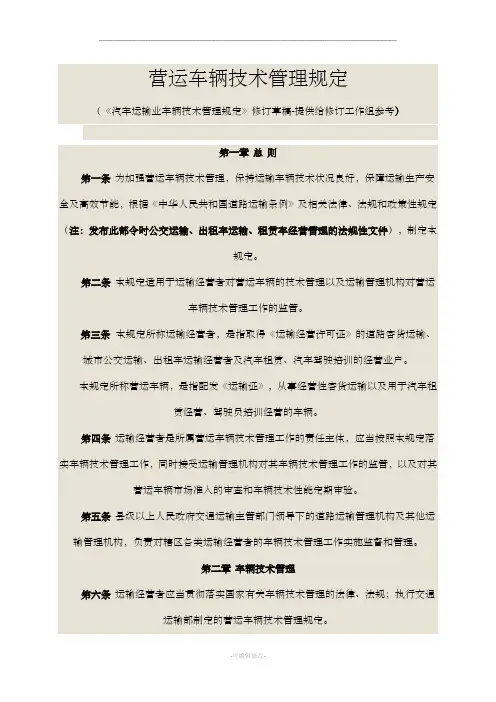 营运车辆技术管理规定
（《汽车运输业车辆技术管理规定》修订草稿-提供给修订工作组参考）
第一章 总 则
第一条 为加强营运车辆技术管理，保持运输车辆技术状况良好，保障运输生产安
全及高效节能，根据《中华人民共和国道路运输条例》及相关法律、法规和政策性规定
（注：发布此部令时公交运输、出租车运输、租赁车经营管理的法规性文件），制定本
规定。
第二条 本规定适用于运输经营者对营运车辆的技术管理以及运输管理机构对营运
车辆技术管理工作的监管。
第三条 本规定所称运输经营者，是指取得《运输经营许可证》的道路客货运输、
城市公交运输、出租车运输经营者及汽车租赁、汽车驾驶培训的经营业户。
本规定所称营运车辆，是指配发《运输证》，从事经营性客货运输以及用于汽车租
赁经营、驾驶员培训经营的车辆。
第四条 运输经营者是所属营运车辆技术管理工作的责任主体，应当按照本规定落
实车辆技术管理工作，同时接受运输管理机构对其车辆技术管理工作的监管，以及对其
营运车辆市场准入的审查和车辆技术性能定期审验。
第五条 县级以上人民政府交通运输主管部门领导下的道路运输管理机构及其他运
输管理机构，负责对辖区各类运输经营者的车辆技术管理工作实施监督和管理。
第二章 车辆技术管理
第六条 运输经营者应当贯彻落实国家有关车辆技术管理的法律、法规；执行交通
运输部制定的营运车辆技术管理规定。